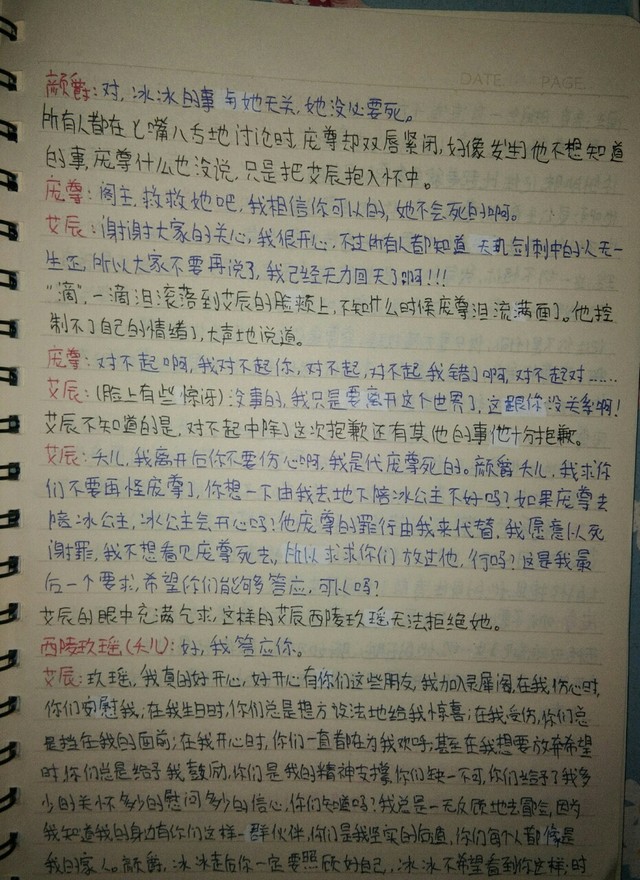 DATE. PAGE.
颜爵:对,冰冰的事与她无关,她没必要死。
所有人都在七嘴八舌地讨论时,庞尊却双唇紧闭,好像发生了他不想知道
的事,庞尊什么也没说,只是把艾辰抱入怀中。
庞尊:阁主,救救她吧,我相信你可以的,她不会死的啊。
艾辰:谢谢大家的关心,我很开心,不过所有人都知道天机剑刺中的人无一
生还,所以大家不要再说了,我已经无力回天了啊!!!
“滴”,一滴泪滚落到艾辰的脸颊上,不知什么时候庞尊泪流满面了。他控
制不了自己的情绪了,大声地说道。
庞尊:对不起啊,我对不起你,对不起,对不起我错了啊,对不起对……
艾辰:(脸上有些惊讶)没事的,我只是要离开这个世界了,这跟你没关系啊!
艾辰不知道的是,对不起中除了这次抱歉还有其他的事他十分抱歉。
艾辰:夭儿,我离开后你不要伤心啊,我是代庞尊死的。颜爵夭儿,我求你
们不要再怪庞尊了,你想一下由我去地下陪冰公主不好吗?如果庞尊去
陪冰公主,冰公主会开心吗?他庞尊的罪行由我来代替,我愿意以死
谢罪,我不想看见庞尊死去,所以求求你们放过他,行吗?这是我最
后一个要求,希望你们能够答应,可以吗?
艾辰的眼中充满乞求,这样的艾辰西陵玖瑶无法拒绝她。
西陵玖瑶(夭儿):好,我答应你。
艾辰:玖瑶,我真的好开心,好开心有你们这些朋友,我加入灵犀阁,在我伤心时,
你们安慰我;在我生日时,你们总是想方设法地给我惊喜;在我受伤,你们总
是挡在我的面前;在我开心时,你们一直都在为我欢呼;甚至在我想要放弃希望
时,你们总是给予我鼓励,你们是我的精神支撑,你们缺一不可,你们给予了我多
少的关怀多少的慰问多少的信心,你们知道吗?我总是一无反顾地去冒险,因为
我知道我的身边有你们这样一群伙伴,你们是我坚实的后盾,你们每个人都像是
我的家人。颜爵,冰冰走后你一定要照顾好自己,冰冰不希望看到你这样;时